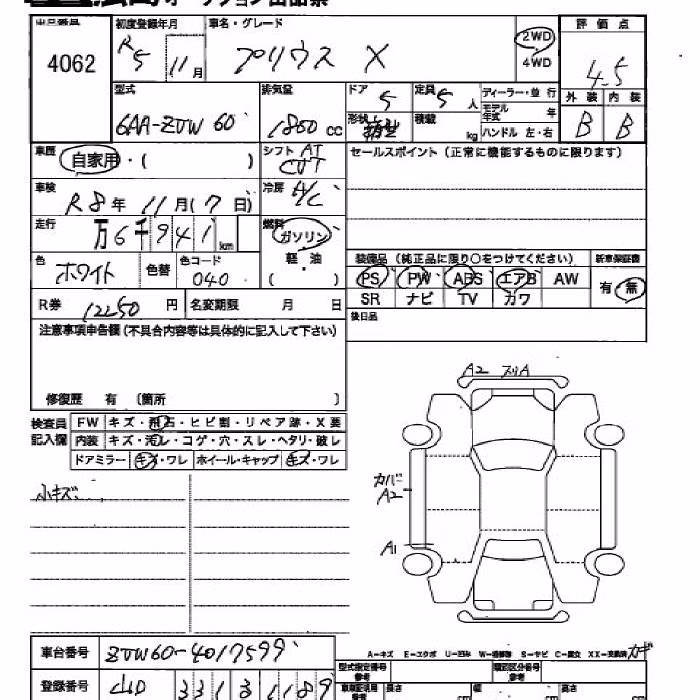 オークション出品票
4062
初度登録年月
R5 11月
車名・グレード
プリウス X
2WD
4WD
評価点
4.5
外装 内装
B B
型式
6AA-ZVW60
排気量
1800cc
ドア 5
定員 5人
形状 箱型
積載 kg
ディーラー・並行
モデル年式 年
ハンドル 左・右
車歴
自家用・( )
シフト AT
CVT
セールスポイント (正常に機能するものに限ります)
車検
R8年 11月(7日)
冷房 A/C
走行
万6千941km
燃料
ガソリン
軽・油
( )
色
ホワイト
色替
色コード
040
装備品 (純正品に限り○をつけてください)
新車保証書
PS PW ABS エアB AW
SR ナビ TV カワ
有・無
R券 12250円
名変期限 月 日
後日品
注意事項申告欄 (不具合内容等は具体的に記入して下さい)
修復歴 有 〔箇所 〕
検査員記入欄
FW キズ・飛石・ヒビ割・リペア跡・X要
内装 キズ・汚レ・コゲ・穴・スレ・ヘタリ・破レ
ドアミラー キズ・ワレ ホイール・キャップ キズ・ワレ
小キズ
A2 スリA
カバー
A2
A1
A-キズ E-エクボ U-凹み W-補修跡 S-サビ C-腐食 XX-交換済
車台番号 ZVW60-4017599
登録番号
331
型式指定番号 参考
類別区分番号 参考
長さ cm 幅 cm 高さ cm